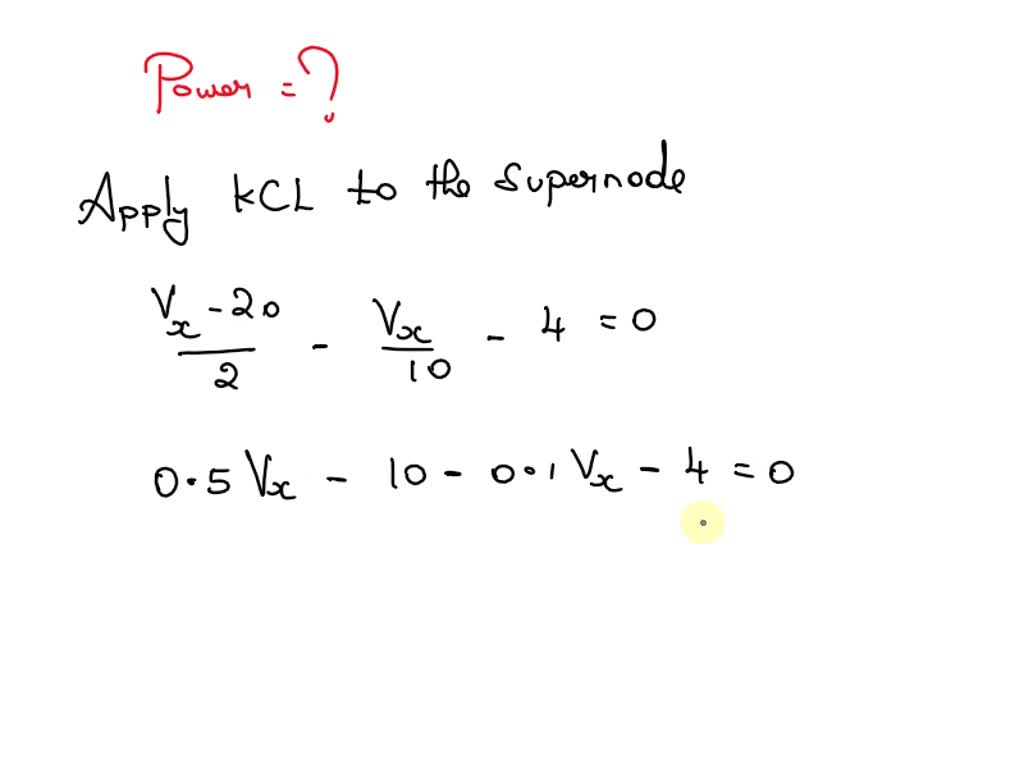 Power = ?
Apply KCL to the supernode
Vx - 20 / 2 - Vx / 10 - 4 = 0
0.5 Vx - 10 - 0.1 Vx - 4 = 0